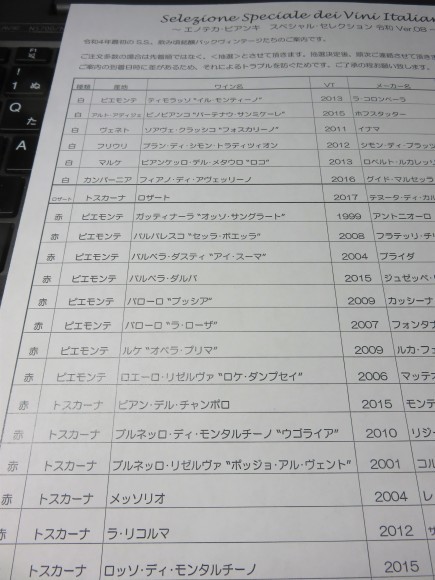 Selezione Speciale dei Vini Italian
～ エノテカ・ビアンキ スペシャル・セレクション 令和 Ver.08 ～
種類 産地 ワイン名 VT メーカー名
白 ピエモンテ ティモラッソ “イル・モンティーノ” 2013 ラ・コロンベーラ
白 アルト・アディジェ ピノビアンコ “バーテナウ・サンミケーレ” 2015 ホフスタッター
白 ヴェネト ソアヴェ・クラッシコ “フォスカリーノ” 2011 イナマ
白 フリウリ ブラン・ディ・シモン・トラディツィオン 2012 シモン・ディ・ブラッツ
白 マルケ ビアンケッロ・デル・メタウロ “ロコ” 2013 ロベルト・ルカレッリ
白 カンパーニア フィアノ・ディ・アヴェッリーノ 2016 グイド・マルセッラ
ロザート トスカーナ ロザート 2017 テヌータ・ディ・カル
赤 ピエモンテ ガッティナーラ “オッソ・サングラート” 1999 アントニオーロ
赤 ピエモンテ バルバレスコ “セッラ・ボエッラ” 2008 フラテッリ・チ
赤 ピエモンテ バルベラ・ダスティ “アイ・スーマ” 2004 ブライダ
赤 ピエモンテ バルベラ・ダルバ 2015 ジュゼッペ・
赤 ピエモンテ バローロ “ブッシア” 2009 カッシーナ
赤 ピエモンテ バローロ “ラ・ローザ” 2007 フォンタナ
赤 ピエモンテ ルケ “オペラ・プリマ” 2009 ルカ・フェ
赤 ピエモンテ ロエーロ・リゼルヴァ “ロケ・ダンプセイ” 2006 マッテオ
赤 トスカーナ ピアン・デル・チャンポロ 2015 モンテ
赤 トスカーナ ブルネッロ・ディ・モンタルチーノ “ウゴライア” 2010 リジー
赤 トスカーナ ブルネッロ・リゼルヴァ “ポッジョ・アル・ヴェント” 2001 コル
赤 トスカーナ メッソリオ 2004 レ
赤 トスカーナ ラ・リコルマ 2012
赤 トスカーナ ロッソ・ディ・モンタルチーノ 2015